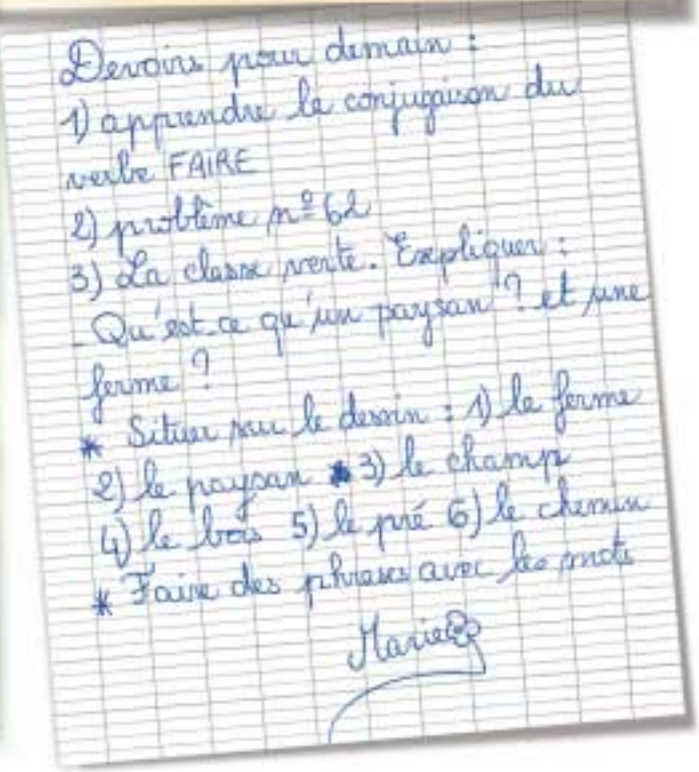 Devoirs pour demain :
1) apprendre la conjugaison du
verbe FAIRE
2) problème n° 62
3) La classe verte. Expliquer :
- Qu'est-ce qu'un paysan ? et une
ferme ?
* Situer sur le dessin : 1) la ferme
2) le paysan * 3) le champ
4) le bois 5) le pré 6) le chemin
* Faire des phrases avec les mots
Marie